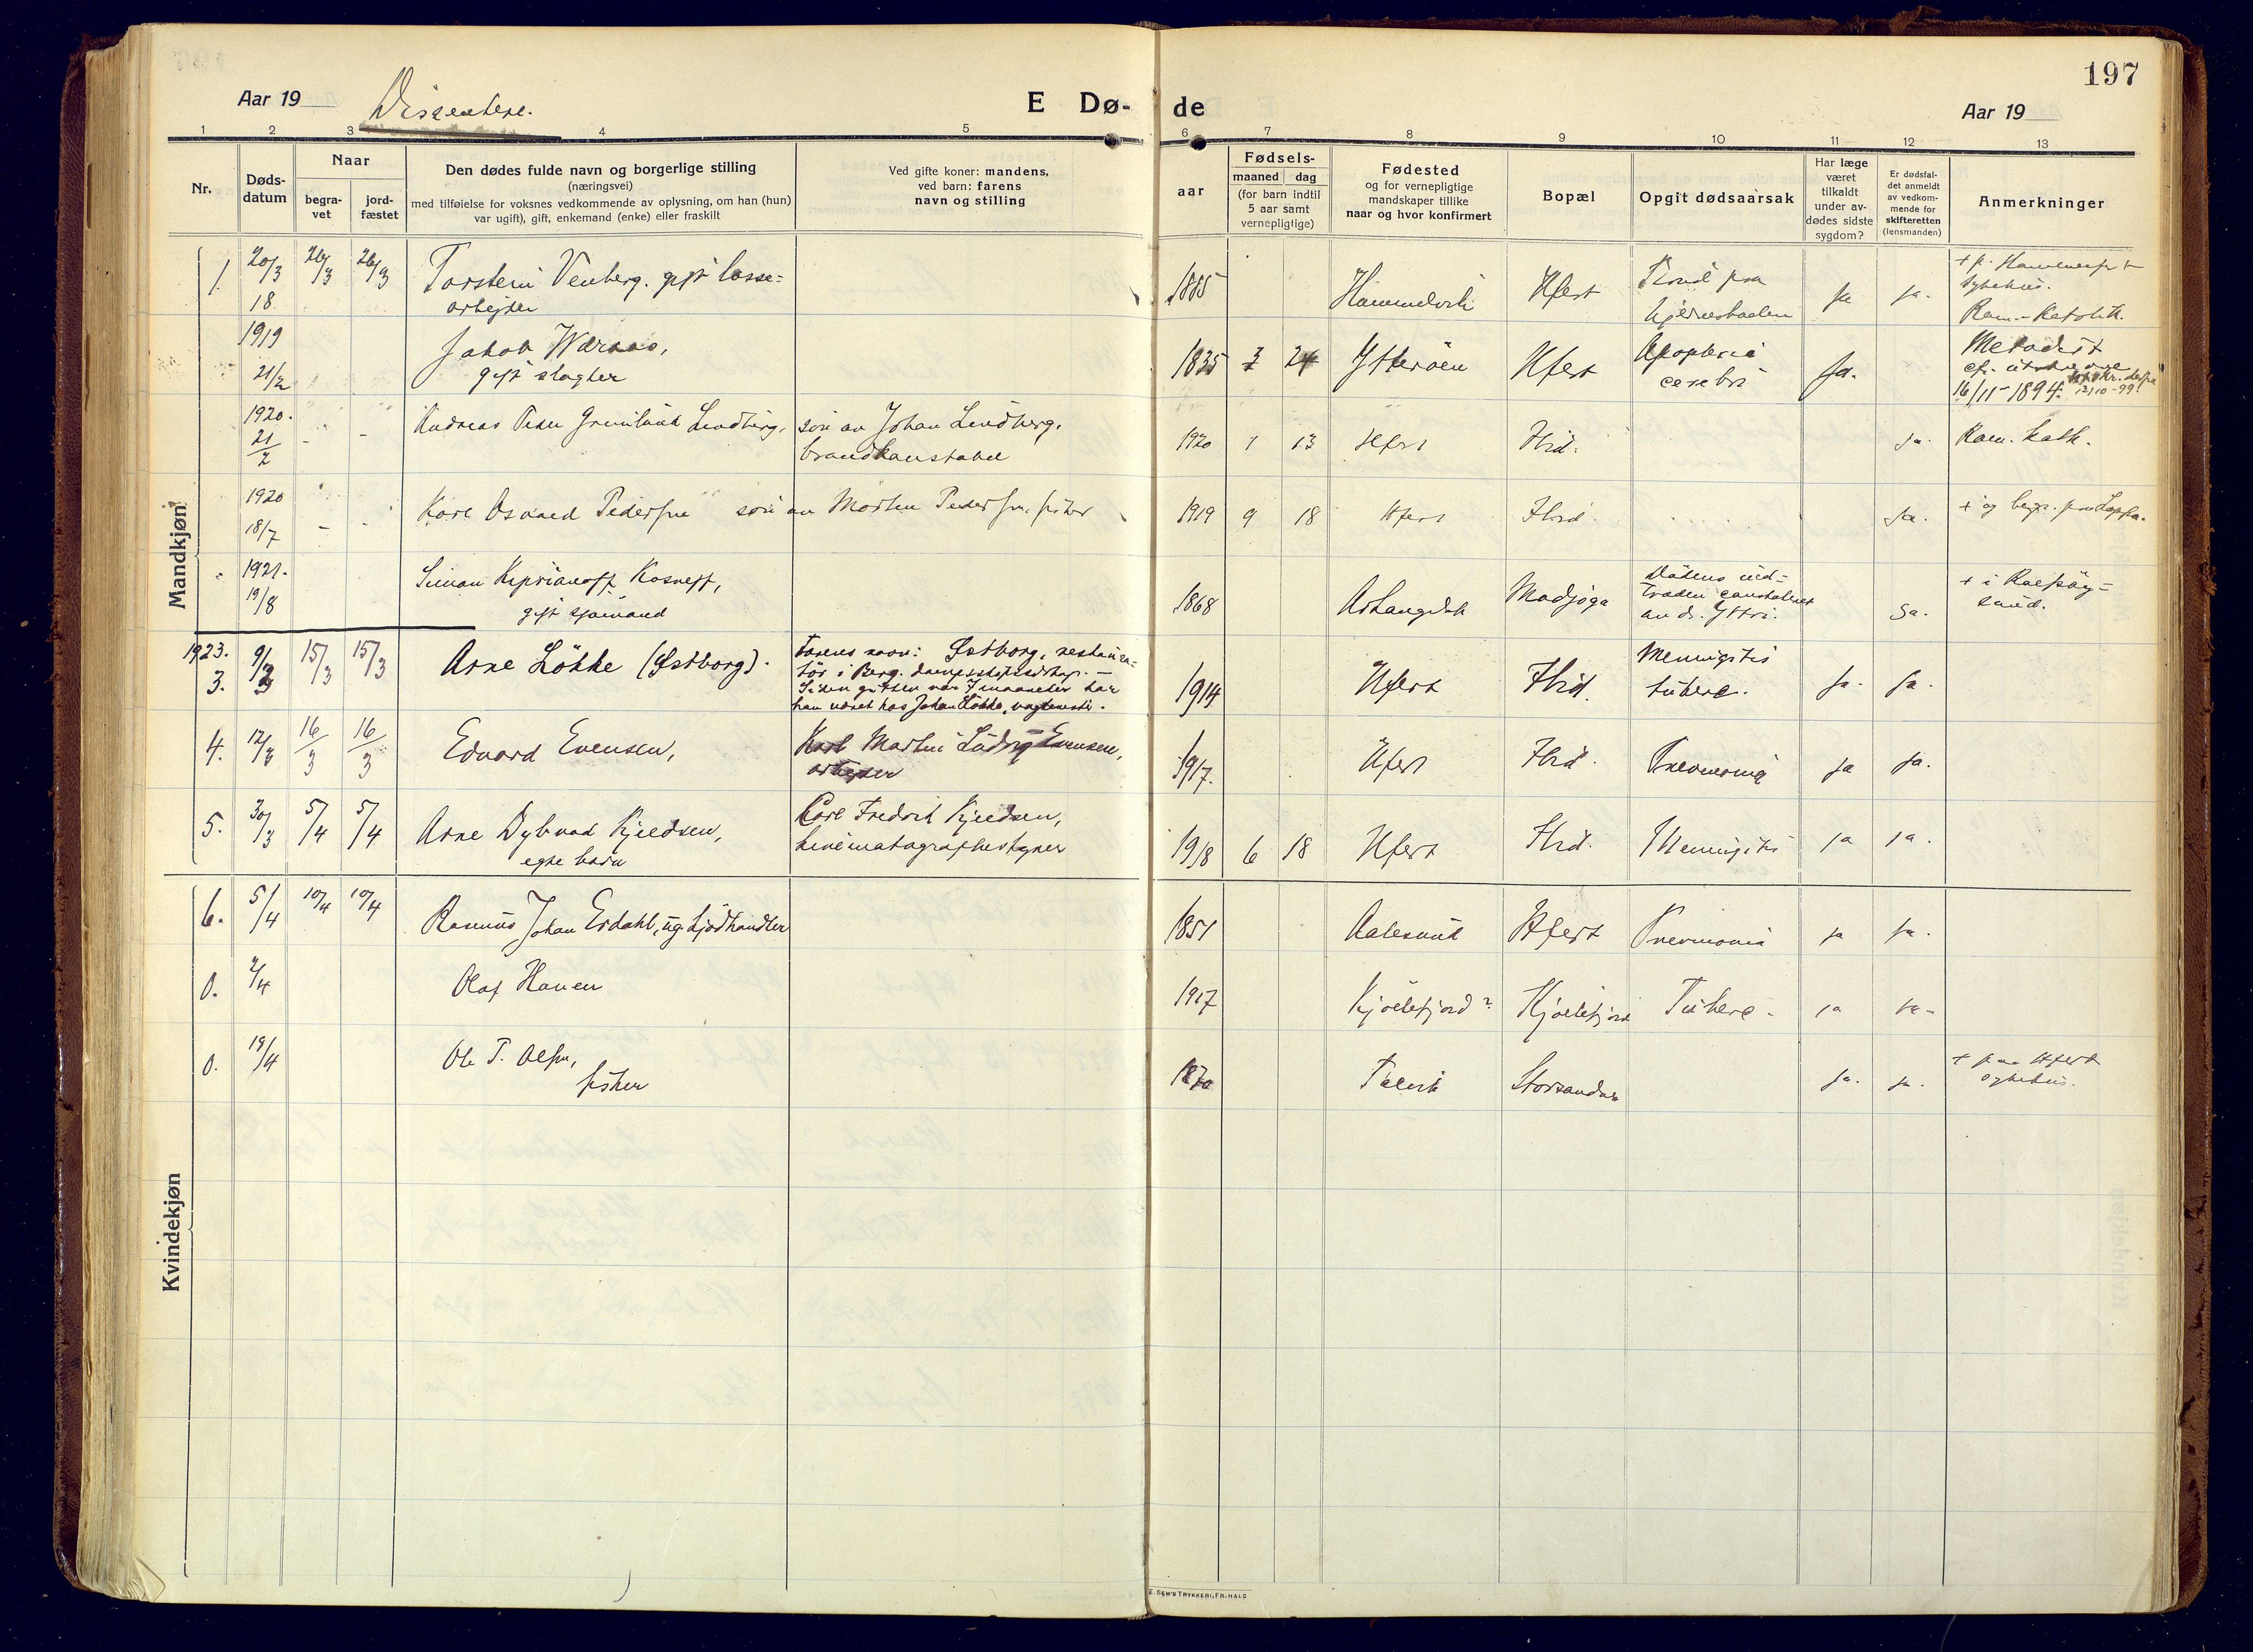 197
Aar 19
Dissentere.
E Dø-
de
Aar 19
1 2 3 4 5 6 7 8 9 10 11 12 13
Nr.
Døds-
datum
Naar
begra-
vet
jord-
fæstet
Den dødes fulde navn og borgerlige stilling
(næringsvei)
med tilføielse for voksnes vedkommende av oplysning, om han (hun)
var ugift), gift, enkemand (enke) eller fraskilt
Ved gifte koner: mandens,
ved barn: farens
navn og stilling
aar
Fødsels-
maaned dag
(for barn indtil
5 aar samt
vernepligtige)
Fødested
og for vernepligtige
mandskaper tillike
naar og hvor konfirmert
Bopæl
Opgit dødsaarsak
Har læge
været
tilkaldt
under av-
dødes sidste
sygdom?
Er dødsfal-
det anmeldt
av vedkom-
mende for
skifteretten
(lensmanden)
Anmerkninger
Mandkjøn
1. 20/3 18. 26/3 26/3
Torstein Venberg. gift losse=
arbejder
1885 Hfest ja ja.
Sykehus.
Rom.-Katolik.
1919
21/2
Jakob
gift slagter
1835 3 24 Ytterøen Hfest
cerebri
ja.
Metodist
16/11 1894.
1920.
21/2 - -
Andreas Peder Lindberg, søn av Johan Lindberg,
brandkonstabel
1920 1 13 Hfest Ibid. ja. Rom. kath.
1920
18/7 - -
Karl Osvald Pedersen søn av Morten Pedersen, fisker
1919 9 18 Hfest Ibid. ja. + og begr. paa Loppa.
1921.
19/8
Simon Kiprianoff
gift sjømand
1868
an dr. Yttri.
ja.
+ i
sund.
1923.
3. 9/3 15/3 15/3
Arne Løkke (Østborg).
Farens navn: Østborg, restaura=
tør i Berg. dampskibsselskap. -
Siden gutten var 7 maaneder har
han været hos Johan Løkke,
1914 Hfest Ibid. Meningitis
tuberc. ja. ja.
4. 12/3 16/3 16/3
Edvard Evensen,
Karl Martin Ludvig Evensen,
arbejder
1917. Hfest Ibid. Pneumonia ja ja.
5. 30/3 5/4 5/4
Arne Dybvad Kjeldsen,
egte barn
Carl Fredrik Kjeldsen,
kinematografbestyrer
1918 6 18 Hfest Ibid. Meningitis ja ja.
6. 5/4 10/4 10/4
Rasmus Johan Erdahl, ug. kjødhandler
1851 Aalesund Hfest Pneumonia ja ja.
0. 2/4
Olaf Hansen
1917 Kjøllefjord? Kjøllefjord Tuberc. ja ja-
0. 19/4
Ole T. Olsen,
fisker
1870 Talvik Storsandnes ja. ja.
+ paa Hfest
sykehus.
Kvindekjøn
E. SEM'S TRYKKERI, FR.HALD